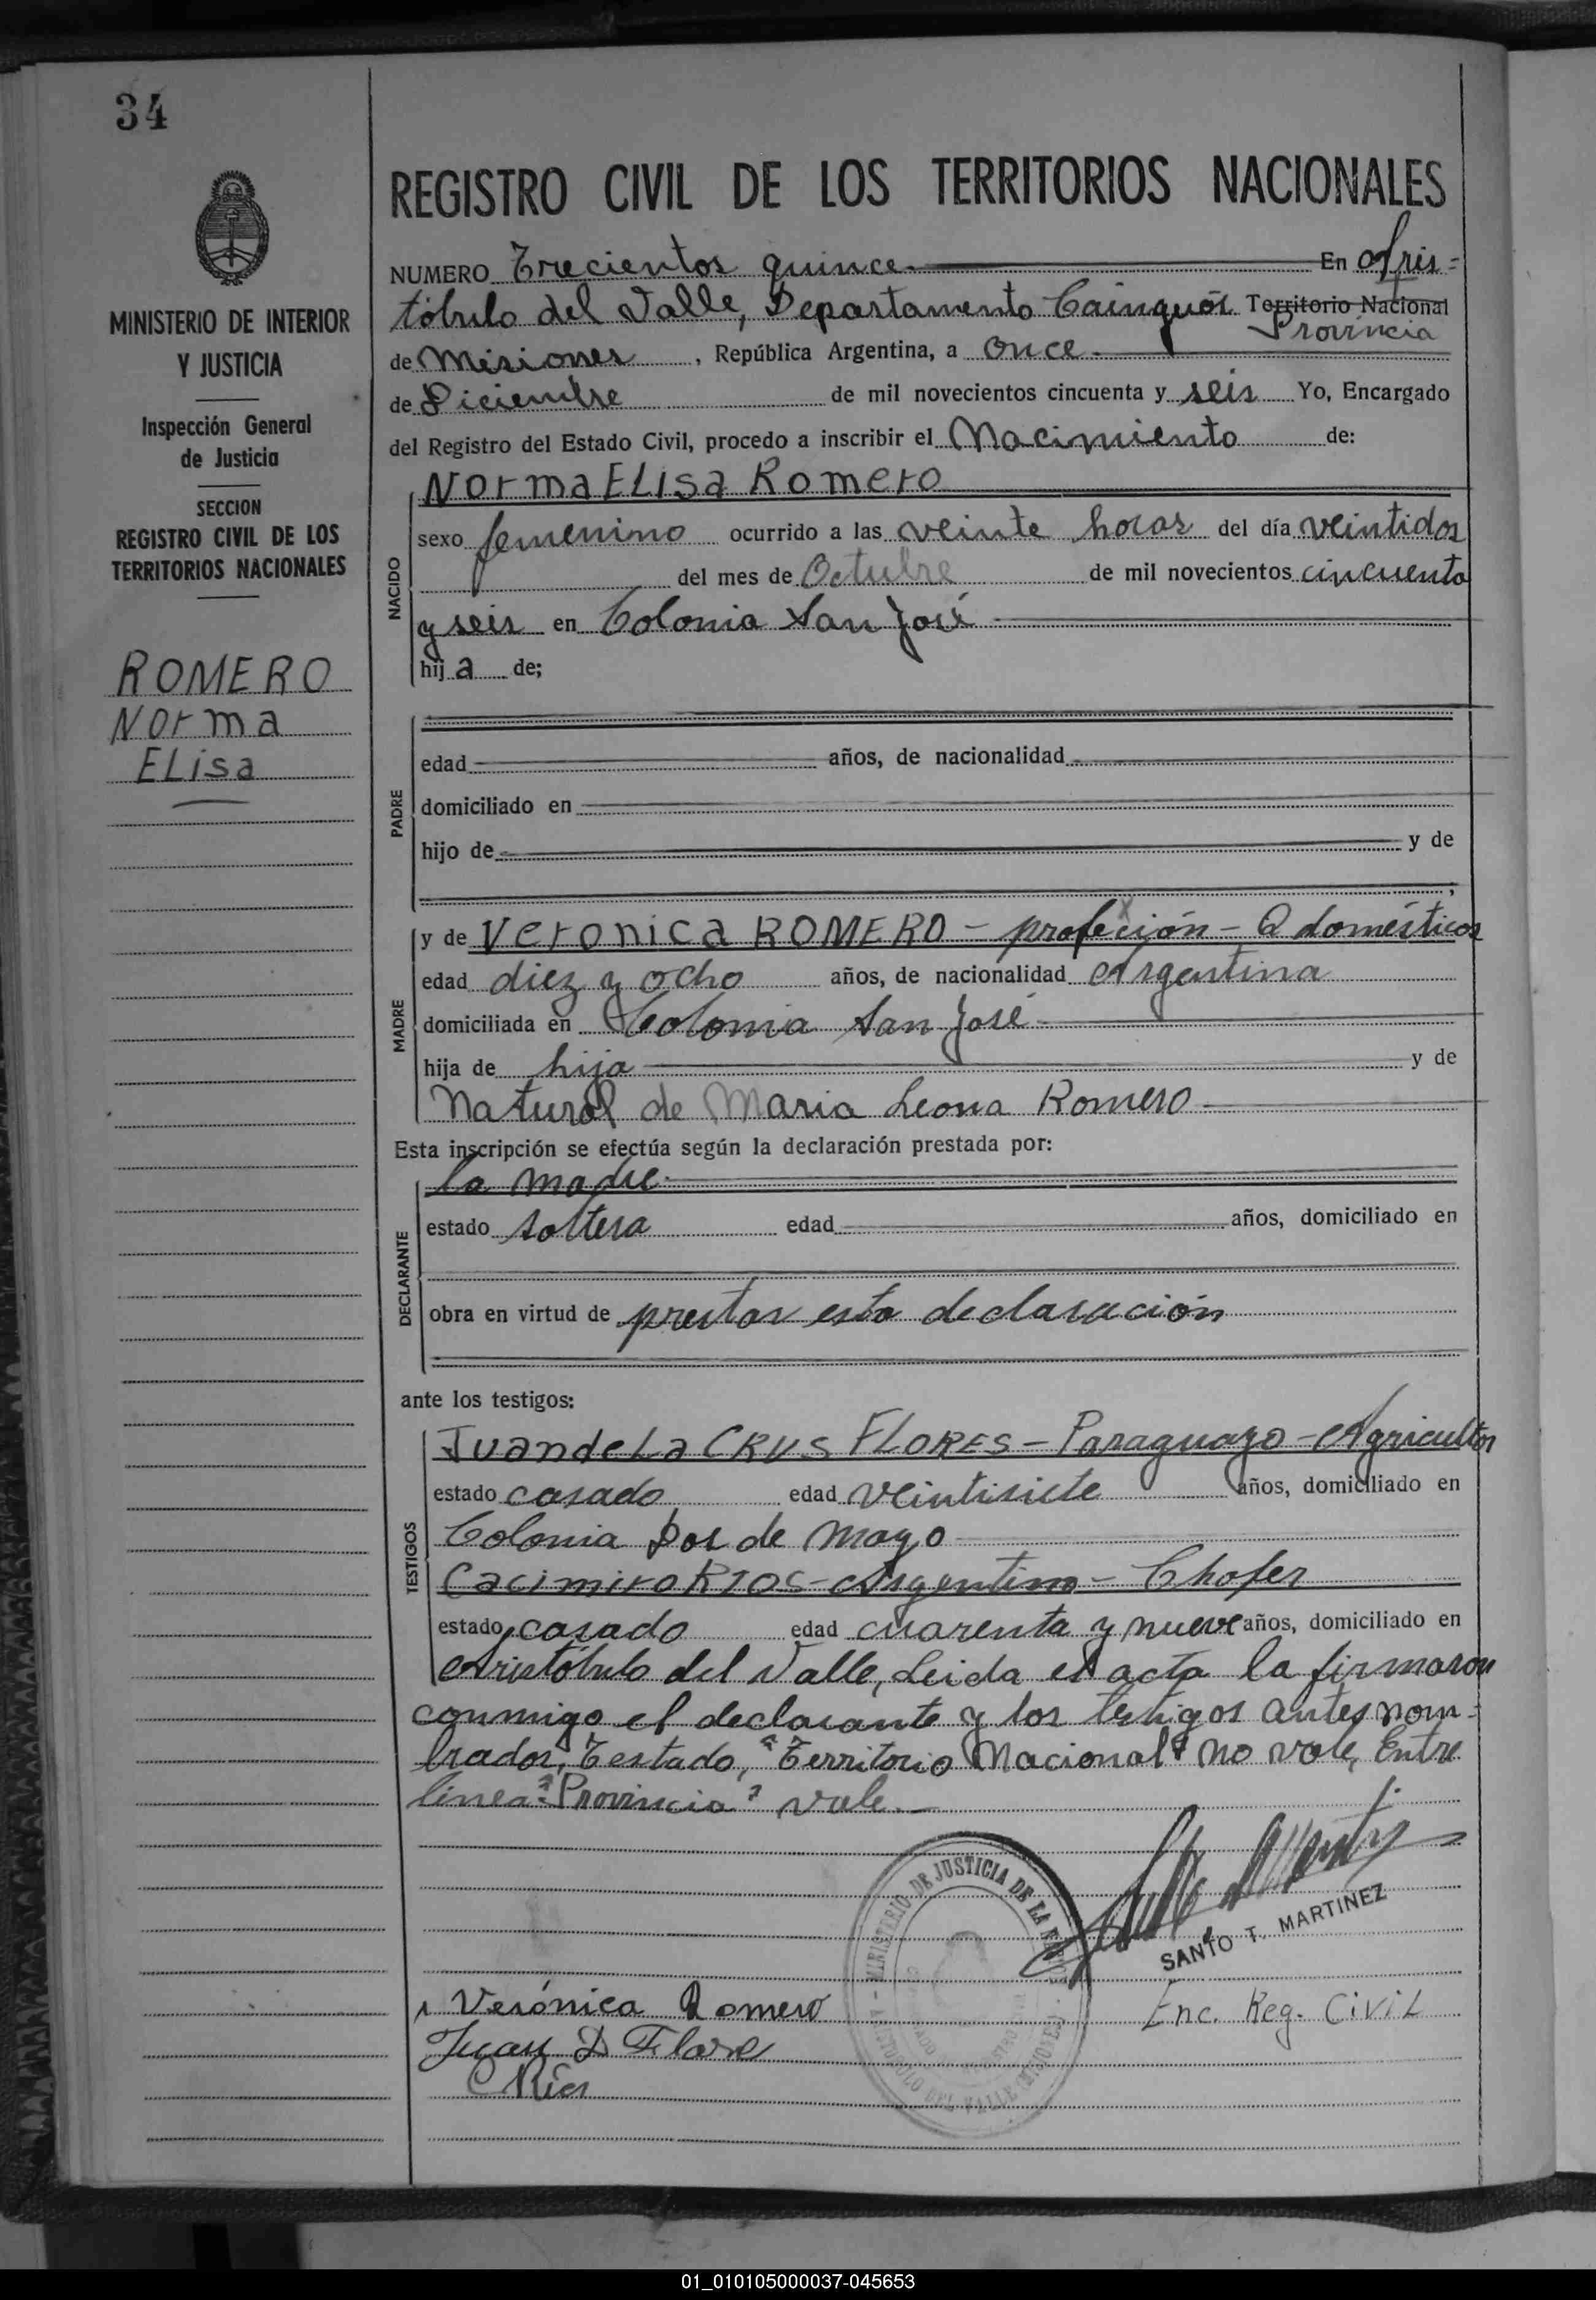 34
REGISTRO CIVIL DE LOS TERRITORIOS NACIONALES
MINISTERIO DE INTERIOR
Y JUSTICIA
Inspección General
de Justicia
SECCION
REGISTRO CIVIL DE LOS
TERRITORIOS NACIONALES
ROMERO
Norma
ELisa
NUMERO Trecientos quince. En Aris=
tóbulo del Valle, Departamento Cainguás Territorio Nacional
Provincia
de Misiones, República Argentina, a once
de Diciembre de mil novecientos cincuenta y seis Yo, Encargado
del Registro del Estado Civil, procedo a inscribir el Nacimiento de:
NACIDO
Norma ELisa Romero
sexo femenino ocurrido a las veinte horas del día veintidos
del mes de Octubre de mil novecientos cincuenta
y seis en Colonia San José
hij a de;
PADRE
edad años, de nacionalidad
domiciliado en
hijo de y de
;
MADRE
y de Veronica ROMERO - profeción - Q domésticos
edad diez y ocho años, de nacionalidad Argentina
domiciliada en Colonia San José
hija de hija y de
Natural de Maria Leona Romero
Esta inscripción se efectúa según la declaración prestada por:
DECLARANTE
la madre
estado soltera edad años, domiciliado en
obra en virtud de prestar esta declaración
ante los testigos:
TESTIGOS
Juan de La CRUS FLORES - Paraguayo - Agricultor
estado casado edad veintisiete años, domiciliado en
Colonia Dos de Mayo
Cacimiro RIOS - Argentino - Chofer
estado casado edad cuarenta y nueve años, domiciliado en
Aristóbulo del Valle, Leida el acta la firmaron
conmigo el declarante y los testigos antes nom-
brados, Testado, "Territorio Nacional" no vale, Entre
linea "Provincia" vale.
MINISTERIO DE JUSTICIA DE LA
SANTO T. MARTINEZ
Enc. Reg. Civil
Verónica Romero
Juan D Flore
C Ríos
01_010105000037-045653